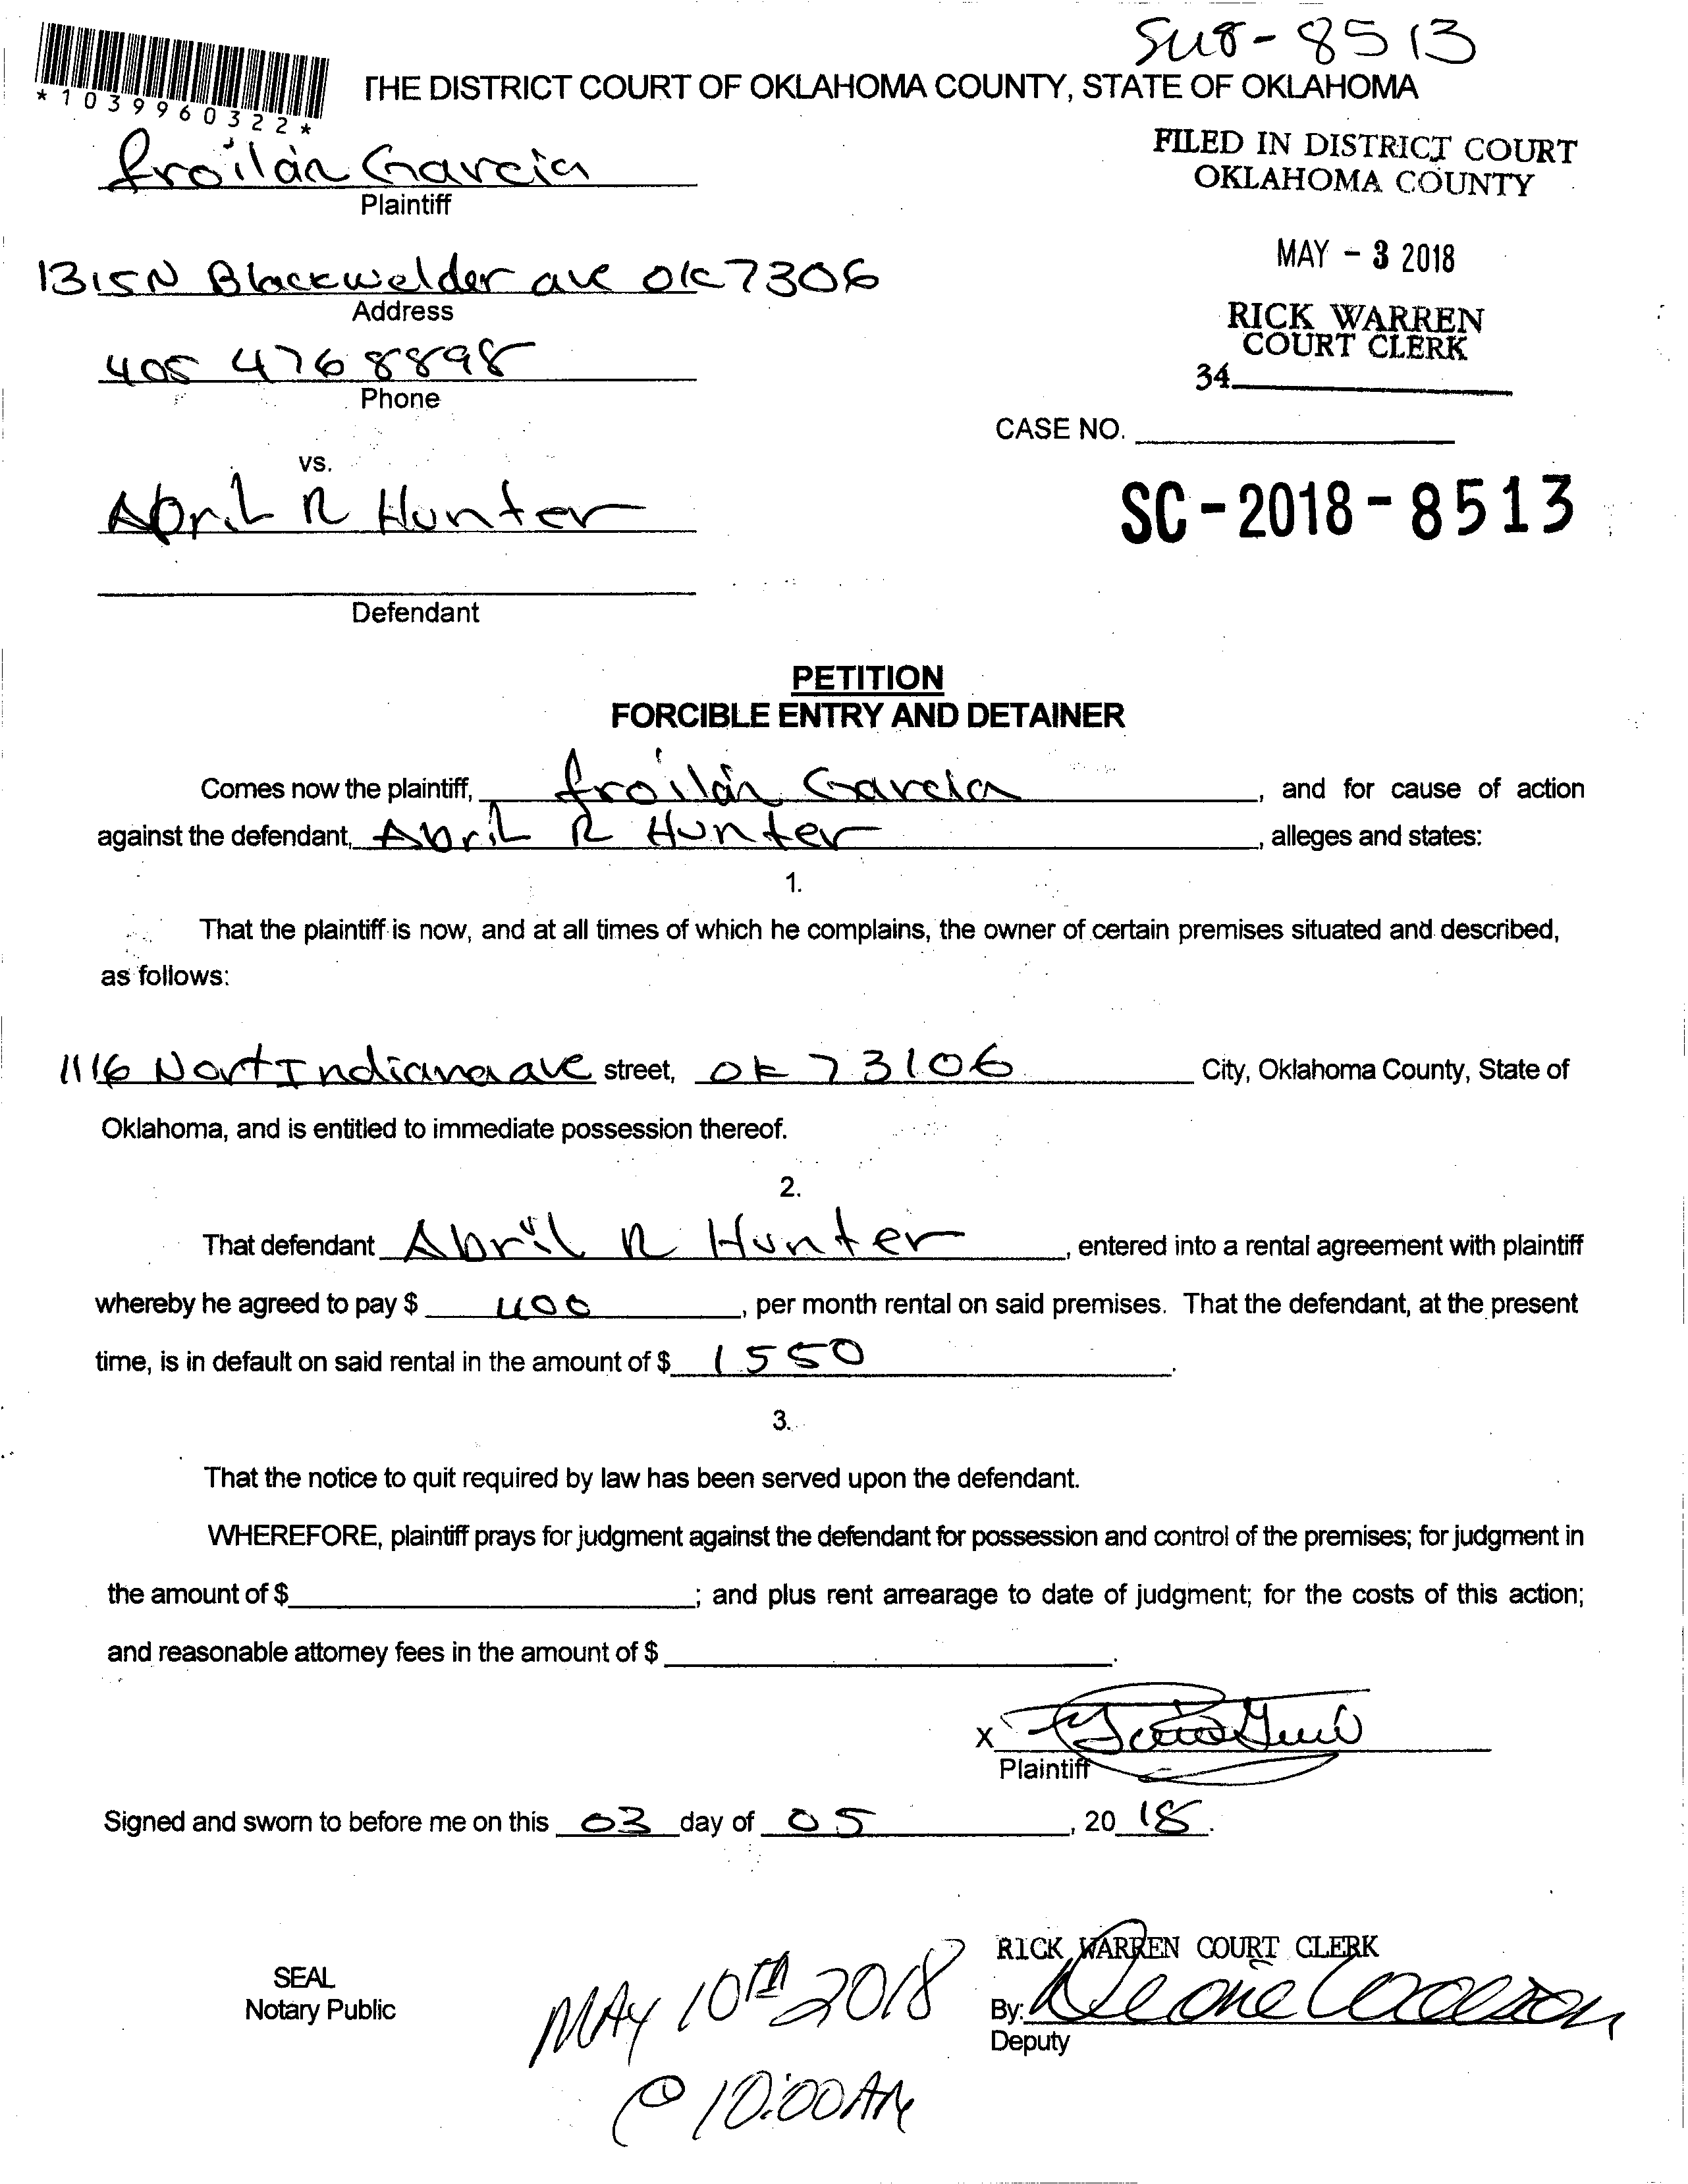 SU8-8513
*1039960322*
THE DISTRICT COURT OF OKLAHOMA COUNTY, STATE OF OKLAHOMA
froilán Garcia
Plaintiff
FILED IN DISTRICT COURT
OKLAHOMA COUNTY
1315N Blackwelder ave OK 7306
Address
MAY - 3 2018
405 476 8898
Phone
RICK WARREN
COURT CLERK
34
CASE NO.
vs.
April R Hunter
SC-2018-8513
Defendant
PETITION
FORCIBLE ENTRY AND DETAINER
Comes now the plaintiff, froilán Garcia, and for cause of action
against the defendant, Abril R Hunter, alleges and states:
1.
That the plaintiff is now, and at all times of which he complains, the owner of certain premises situated and described,
as follows:
1116 Nort Indiana ave street, ok 73106 City, Oklahoma County, State of
Oklahoma, and is entitled to immediate possession thereof.
2.
That defendant Abril R Hunter, entered into a rental agreement with plaintiff
whereby he agreed to pay $ 400, per month rental on said premises. That the defendant, at the present
time, is in default on said rental in the amount of $ 1550.
3.
That the notice to quit required by law has been served upon the defendant.
WHEREFORE, plaintiff prays for judgment against the defendant for possession and control of the premises; for judgment in
the amount of $; and plus rent arrearage to date of judgment; for the costs of this action;
and reasonable attorney fees in the amount of $.
X
Plaintiff
Signed and sworn to before me on this 03 day of 05, 20 18.
RICK WARREN COURT CLERK
SEAL
Notary Public
By:
Deputy
MAY 10TH 2018
@ 10:00AM